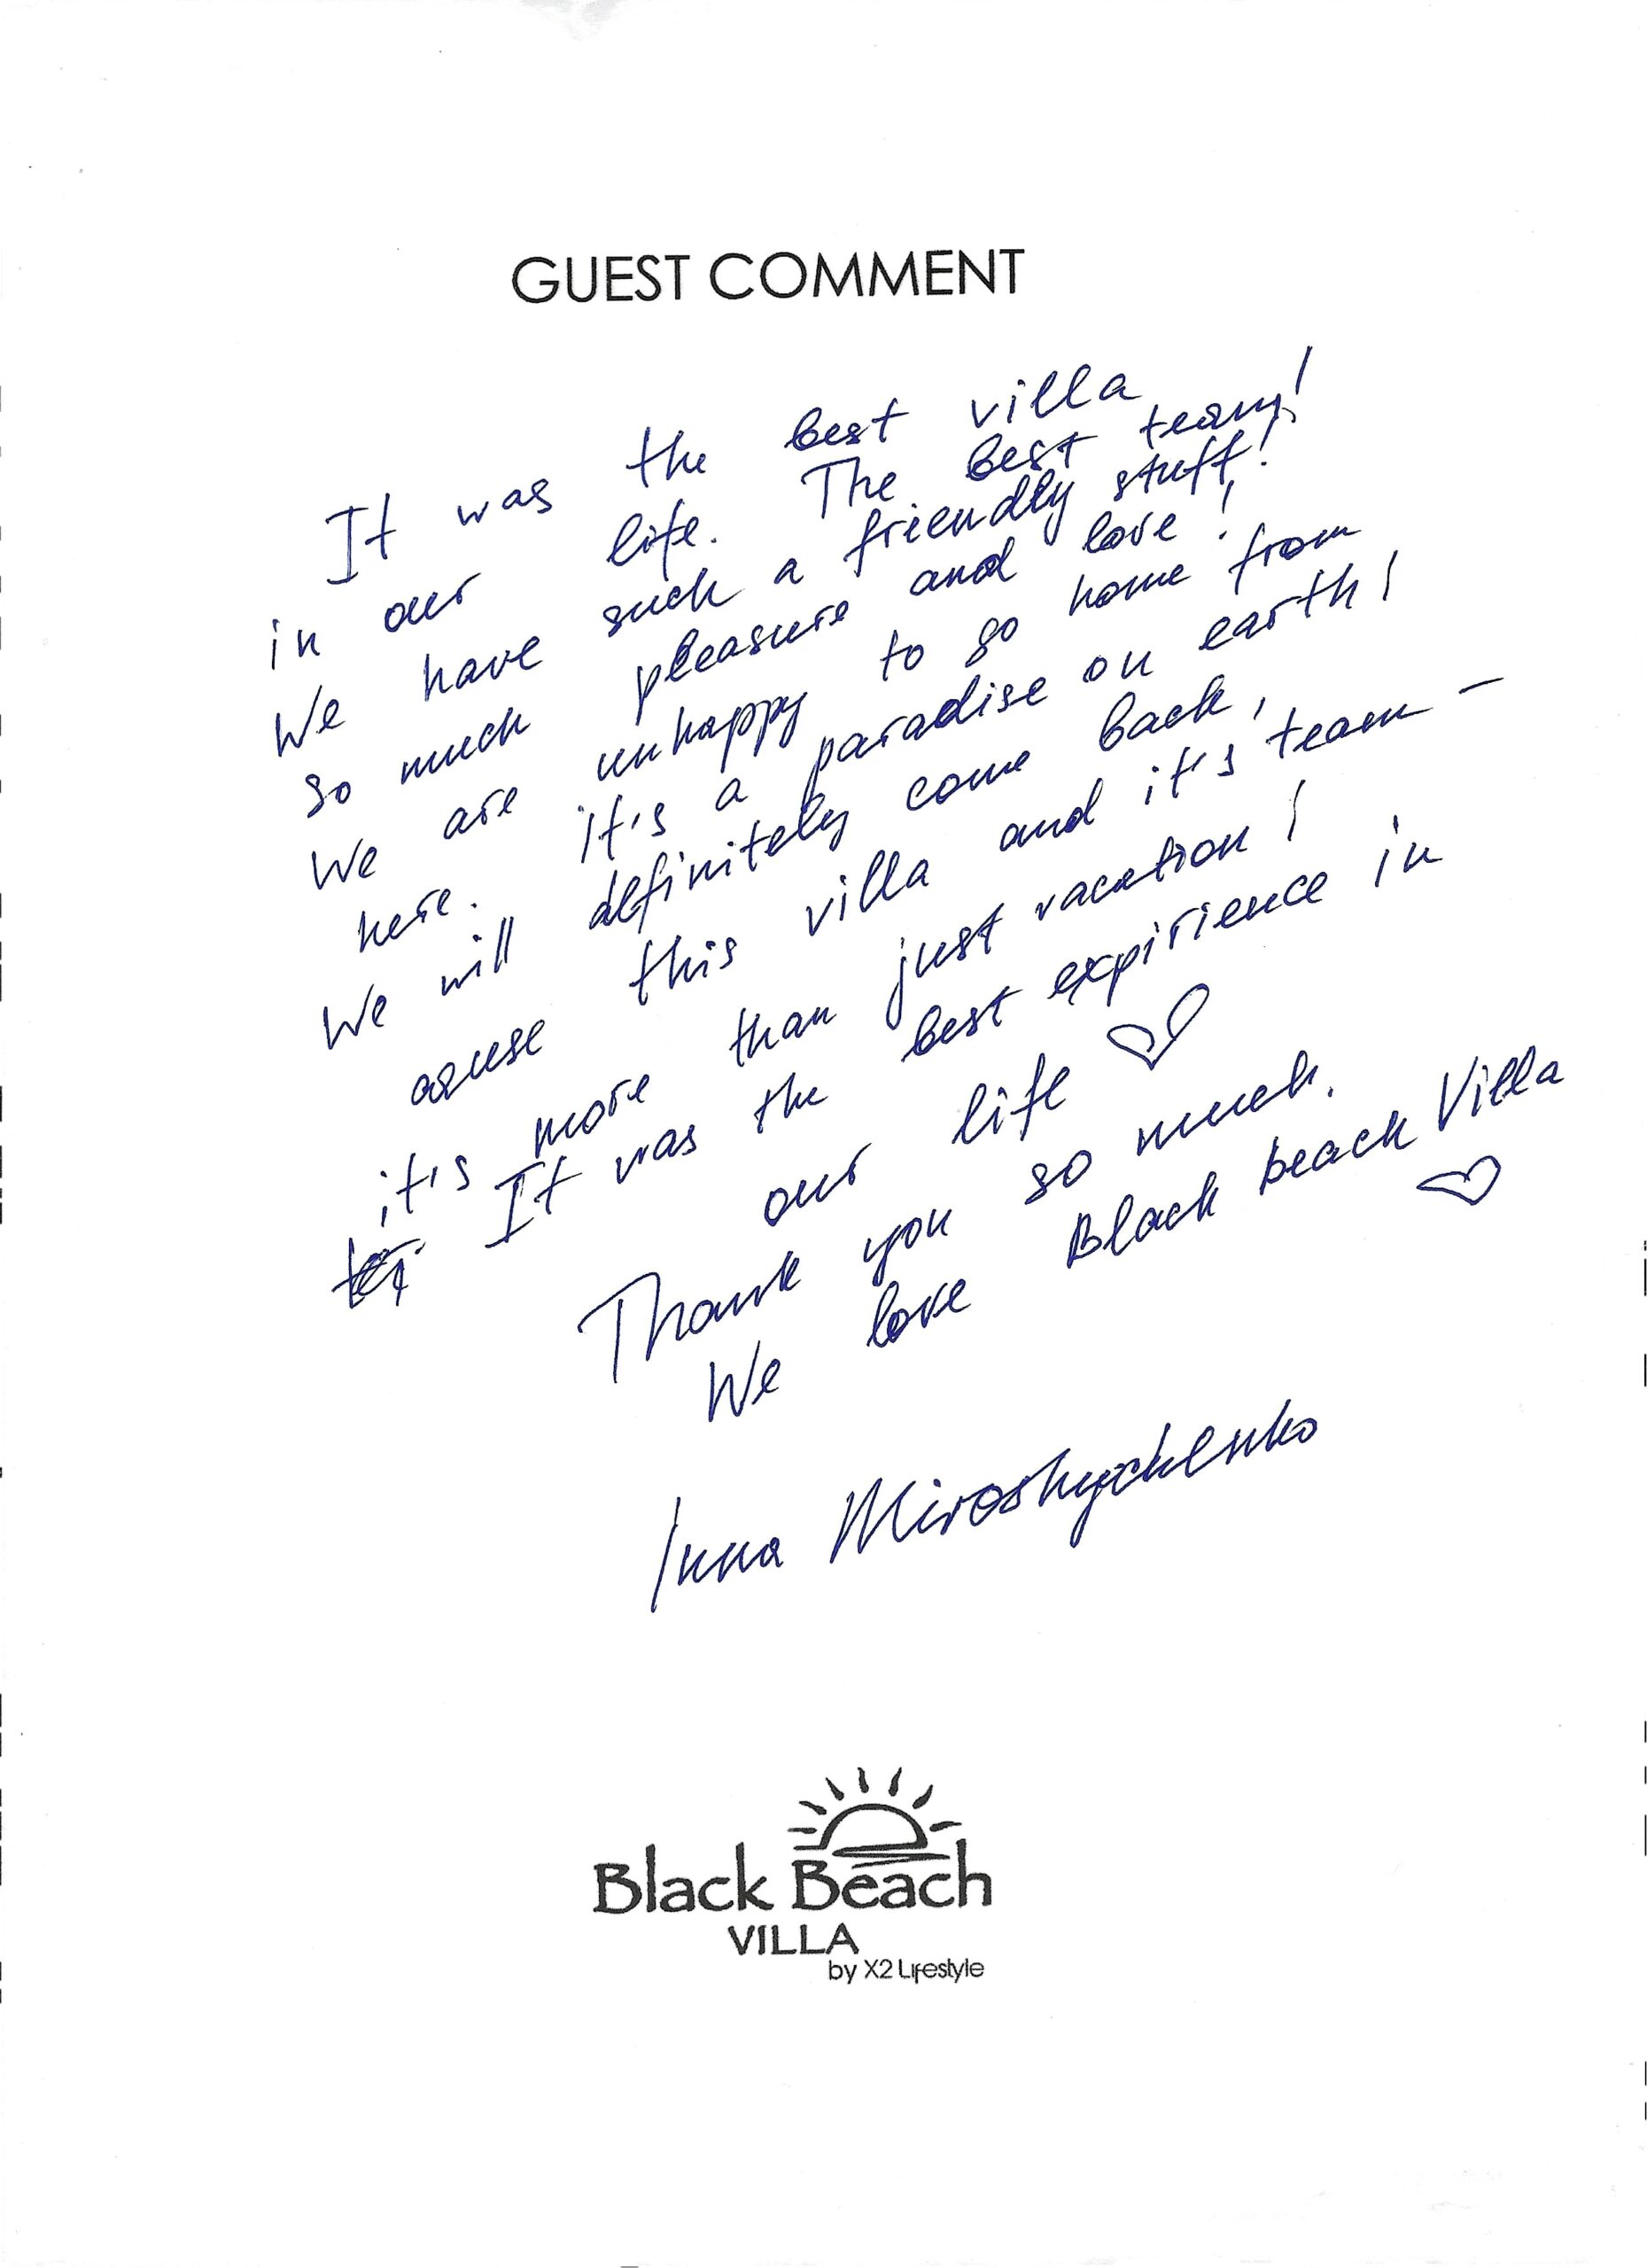 GUEST COMMENT
It was the best villa
in our life. The best team!
We have such a friendly stuff!
so much pleasure and love!
We are unhappy to go home from
here. It's a paradise on earth!
We will definitely come back,
cause this villa and it's team –
it's more than just vacation!
It was the best expirience in
our life ♡
Thank you so much.
We love Black beach Villa
♡
Inna Miroshnychenko
Black Beach
VILLA
by X2 Lifestyle